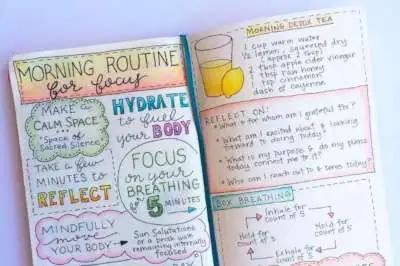 MORNING ROUTINE
for focus
MAKE A
CALM SPACE
*Space of
Sacred Silence*
HYDRATE
to fuel
your
BODY
TAKE A few
MINUTES to
REFLECT
FOCUS
on your
BREATHING
for 5
MINUTES
MINDFULLY
move
YOUR BODY
Sun Salutations
or a brisk walk
remaining internally
focused
MORNING DETOX TEA
1 cup warm water
½ lemon, squeezed dry
(approx 2 tbsp)
2 tbsp apple cider vinegar
1 tbsp raw honey
1 tsp cinnamon
dash of cayenne
REFLECT ON:
• What or whom am I grateful for?
• What am I excited about & looking
forward to doing today?
• What is my purpose & do my plans
today connect me to it?
• Who can I reach out to & serve today?
BOX BREATHING
Inhale for
count of 5
Hold for
count of 5
Hold for
count of 5
Exhale for
count of 5